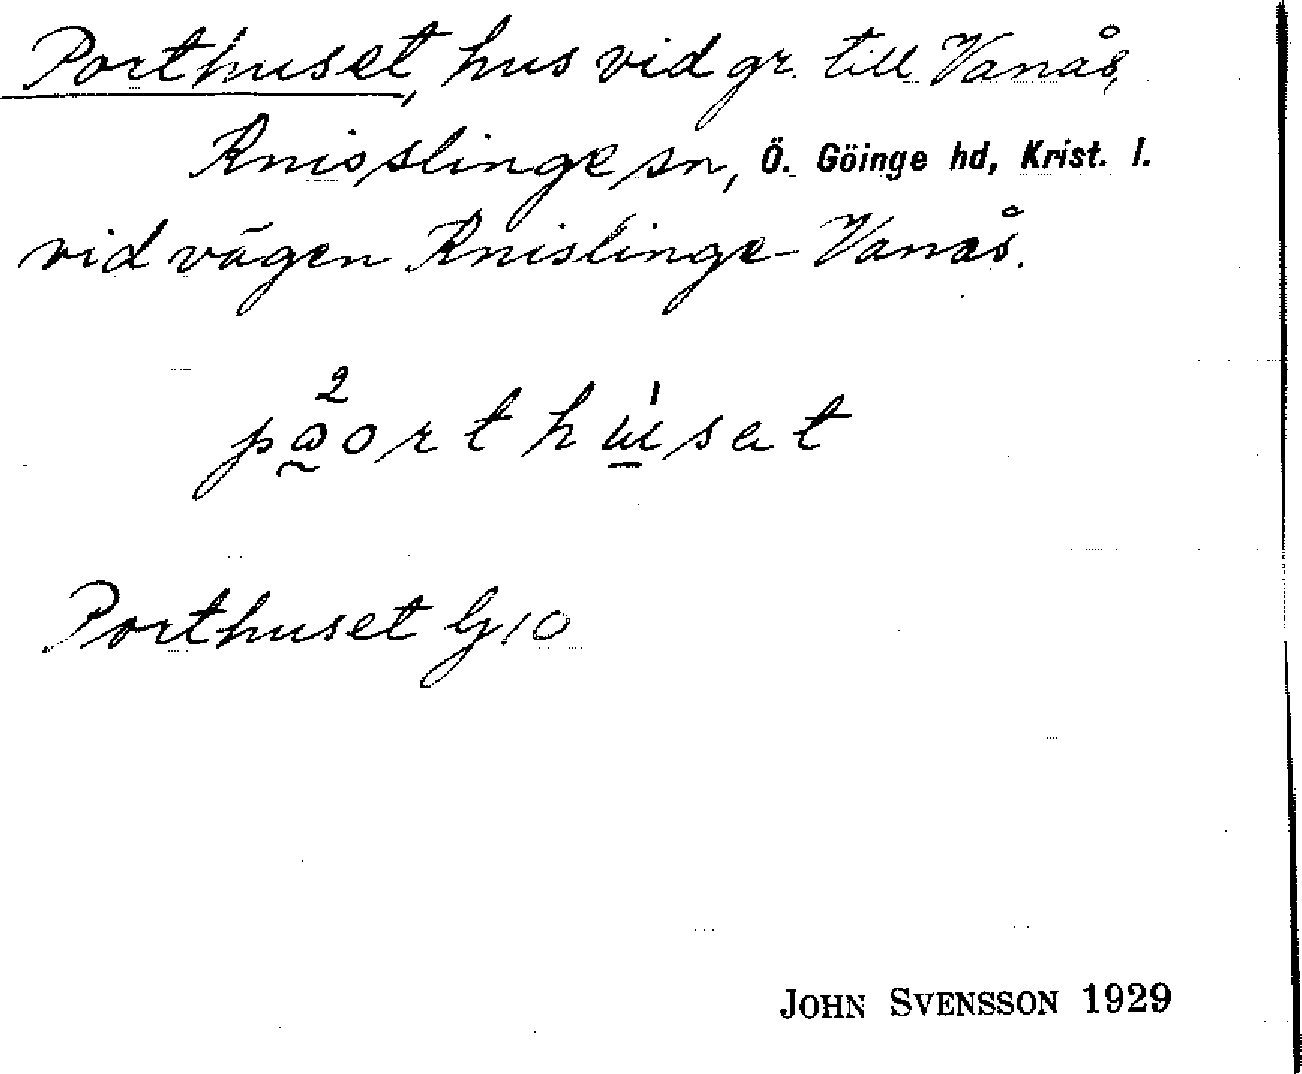 Porthuset, hus vid gr. till Vanås,
Knisslinge sn, Ö. Göinge hd, Krist. l.
vid vägen Knislinge-Vanås.
Porthuset G10
JOHN SVENSSON 1929